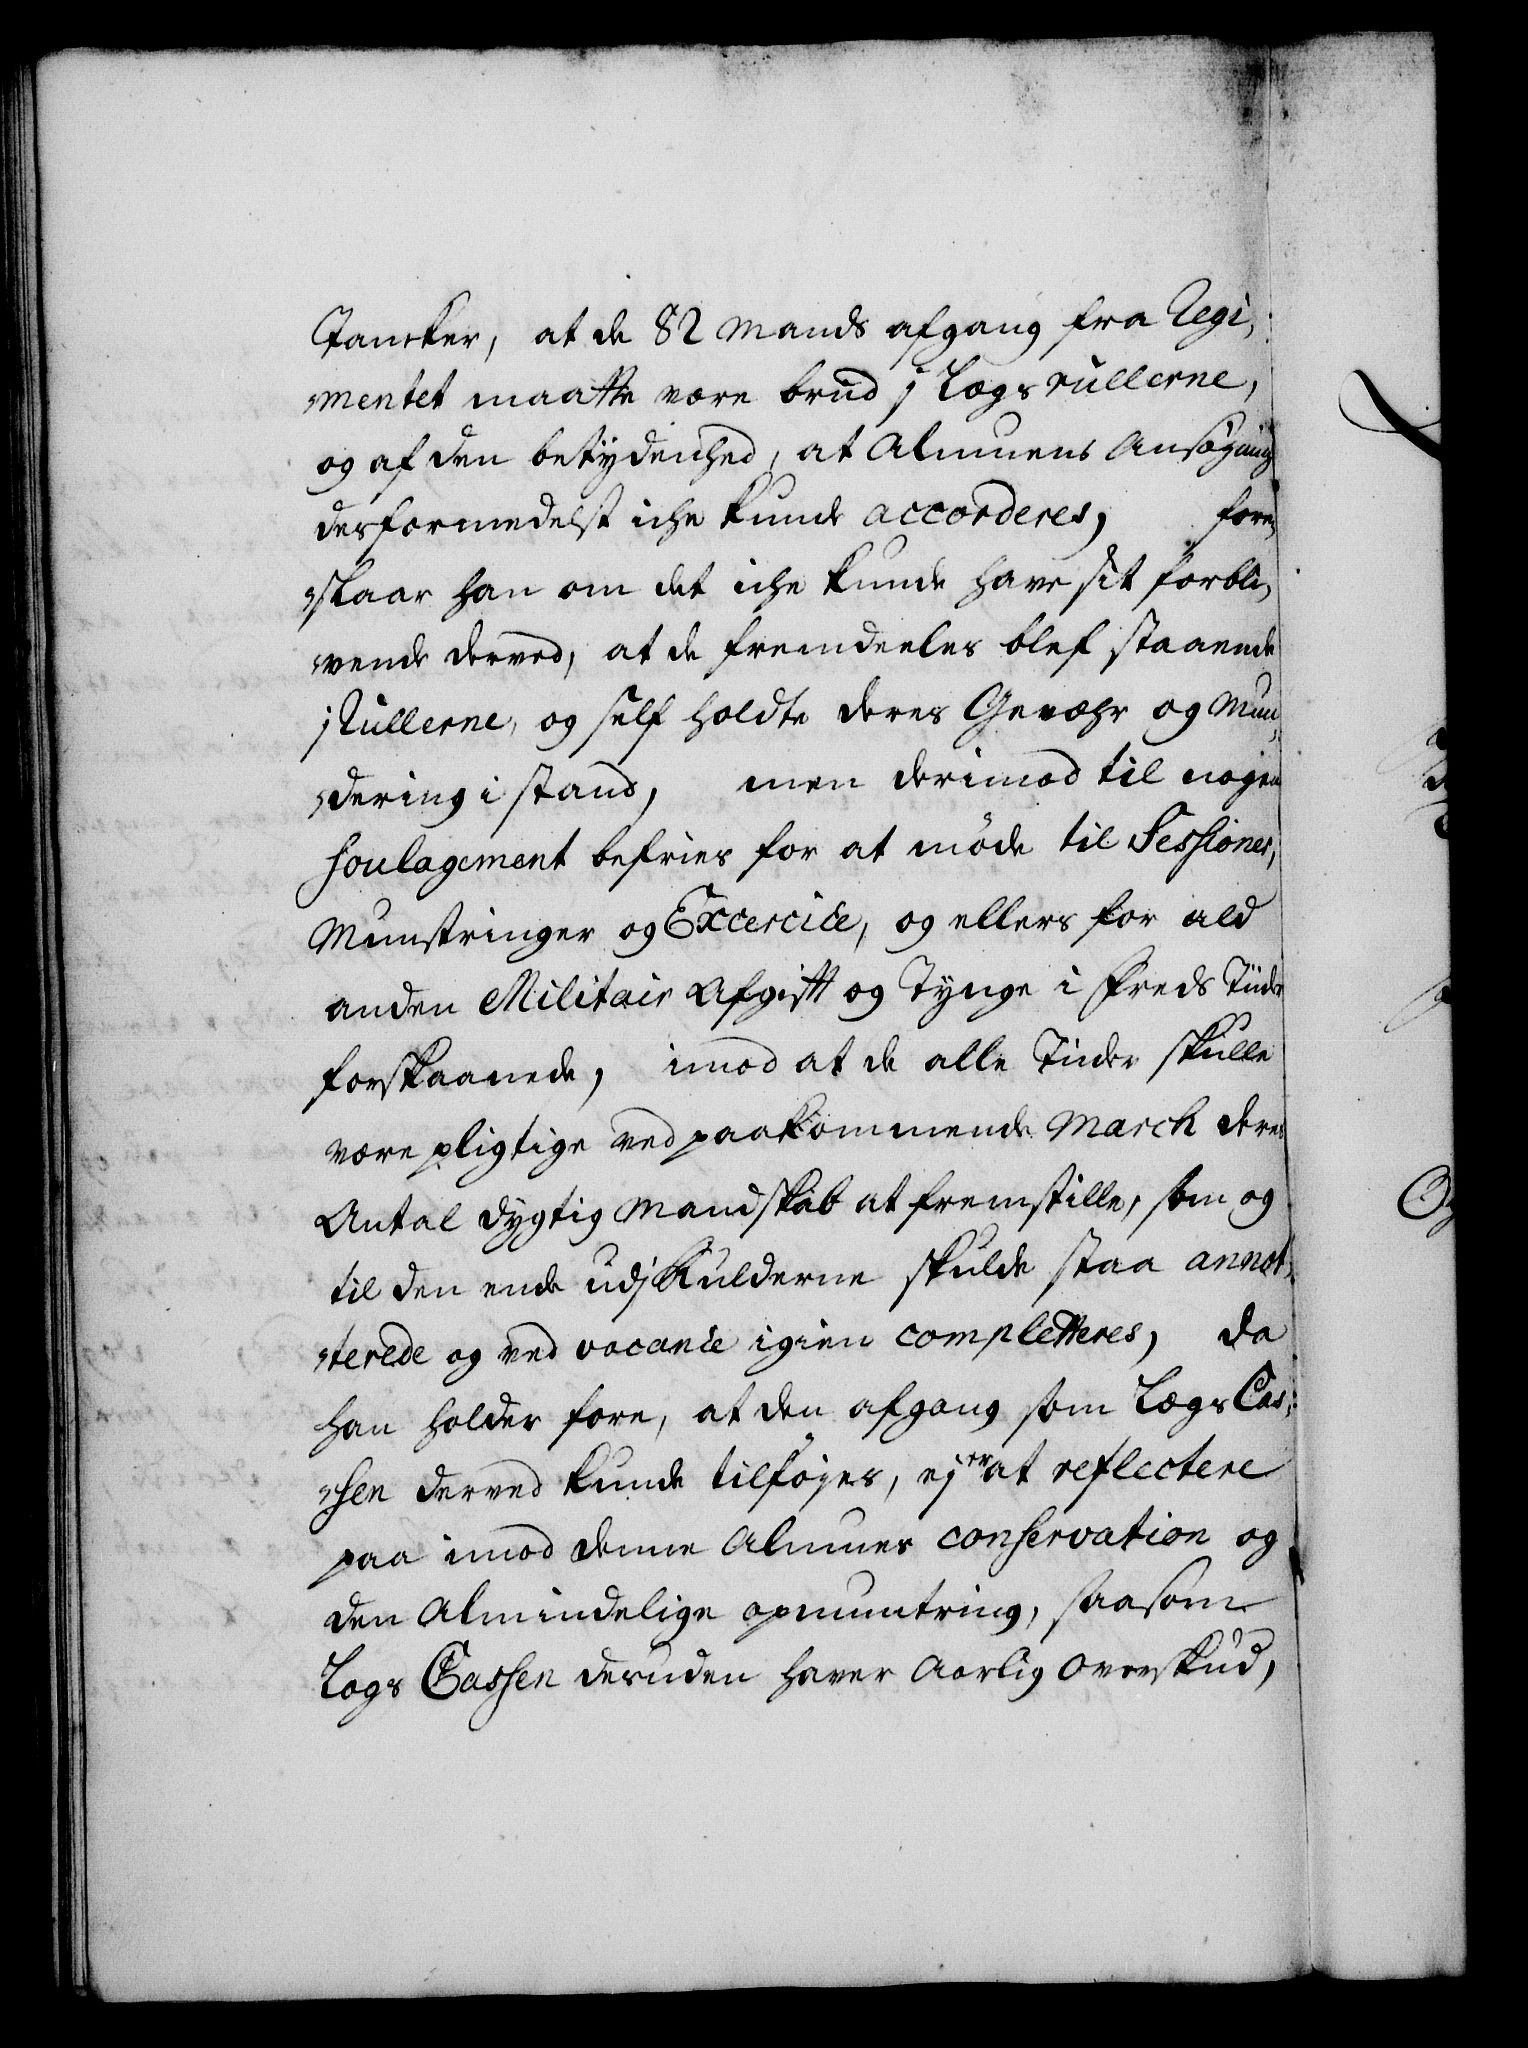 Tancker, at de 82 Mands afgang fra Regi,
mentet maatte være brud j Lægs rullerne,
og af den betydenhed, at Almuens Ansøgning
desformedelst iche kunde accorderes, fore,
slaar han om det iche kunde have sit forbli,
vende derved, at de fremdeeles blef staaende
j Rullerne, og self holdte deres Gevæhr og Mun,
dering i stand, men derimod til nogen
soulagement befries for at møde til Sessioner,
Munstringer og Excercice, og ellers for ald
anden Militair Afgift og Tynge i Freds Tiider
forskaanede, imod at de alle Tiider skulle
være pligtige ved paakommende March deres
Antal dygtig Mandskab at fremstille, som og
til den ende udj Rulderne skulde staa annot,
terede og ved vacance igien completteres, da
han holder fore, at den afgang som Lægs Cas,
sen derved kunde tilføyes, ej er at reflectere
paa imod denne Almues conservation og
den Almindelige opmuntring, saasom
Lægs Cassen desuden haver Aarlig Overskud,